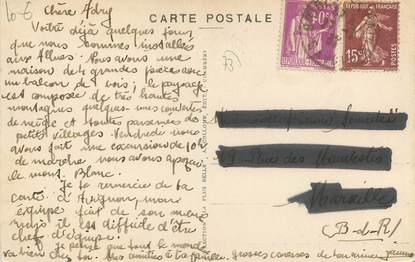 CARTE POSTALE
Chère Adry
Voilà déjà quelques jours
que nous sommes installées
aux Allues. Nous avons une
maison de 4 grandes pièces avec
un balcon de bois ; le paysage
est composé de très hautes
montagnes quelques-unes couvertes
de neige et toutes parsemées de
petits villages. Vendredi nous
avons fait une excursion de 10 h
de marche nous avons aperçu
le mont Blanc.
Je te remercie de ta
carte d'Avignon, mon
équipe fait de son mieux
mais il est difficile d'être
chef d'équipe !
Je pense que tout le monde
va bien chez toi. Mes amitiés à ta famille. grosses caresses de ton amie
REPUBLIQUE FRANÇAISE
POSTES
40c
REPUBLIQUE FRANÇAISE
15c
POSTES
73
Rue des
Marseille
(B-d-R)
LA PLUS BELLE